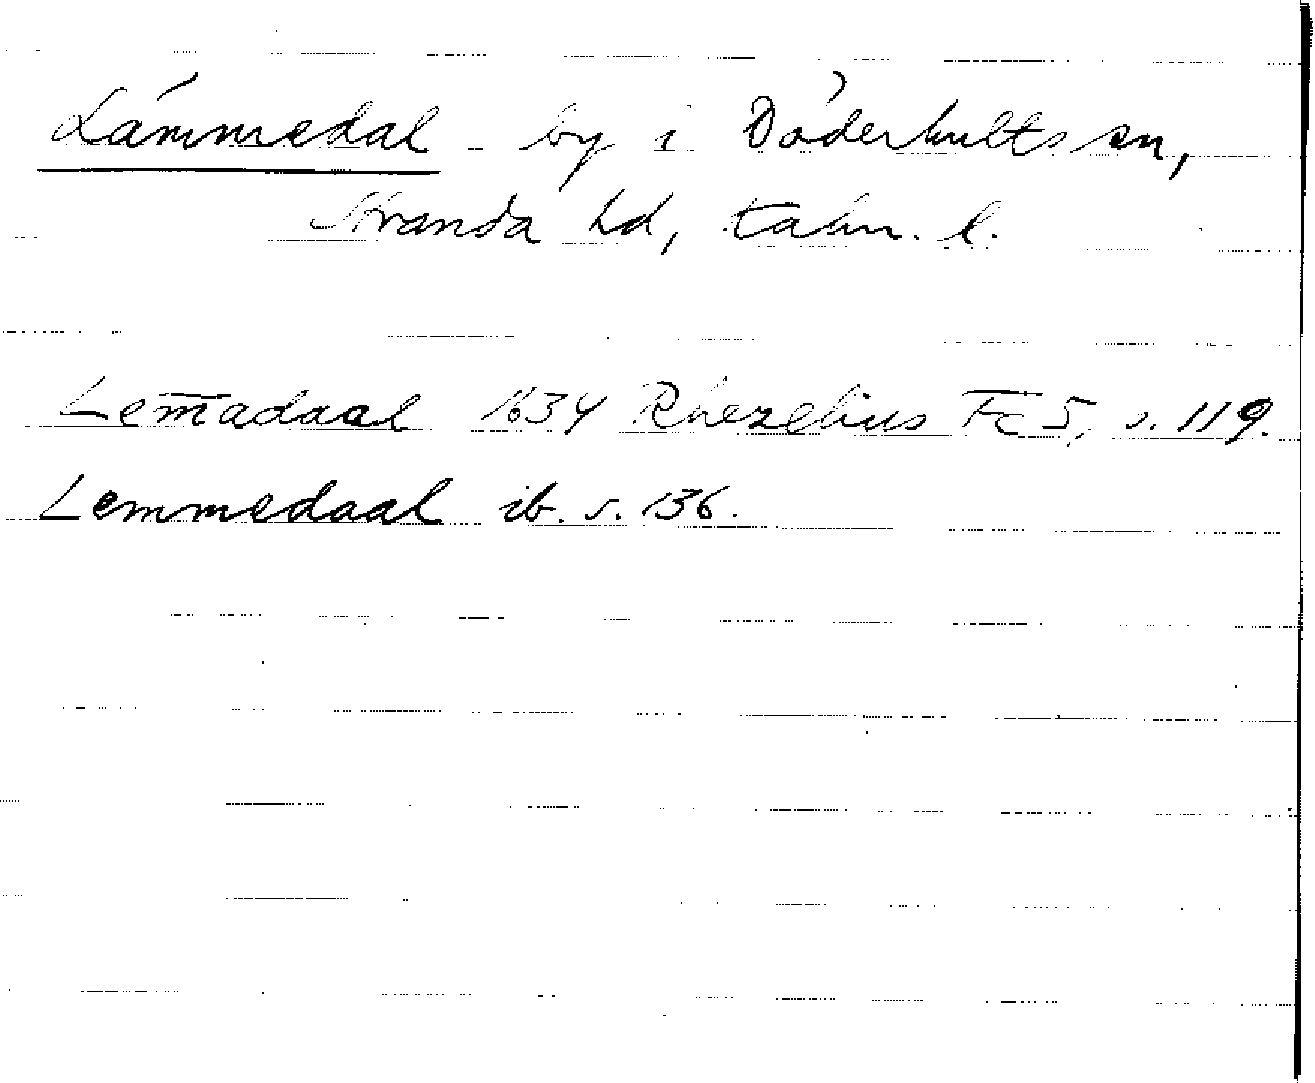 Lämmedal - by i Döderhults sn,
Stranda hd, Kalm. l.
Lem̅adaal 1634 Rhezelius Fc 5, s. 119.
Lemmedaal ib. s. 136.